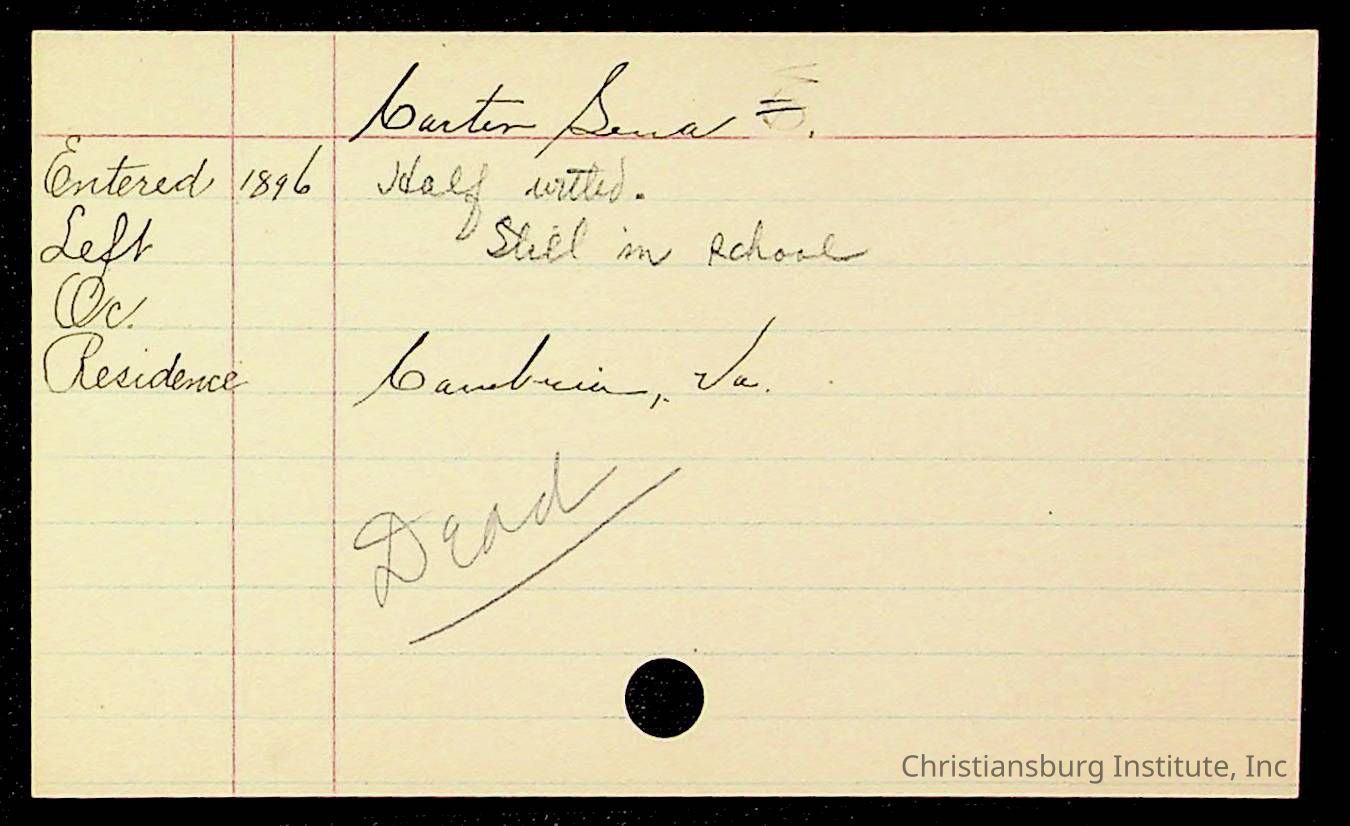 Carter Lena
Entered 1896 Half witted.
Left Still in school
Oc.
Residence Cambria, Va.
Dead
Christiansburg Institute, Inc